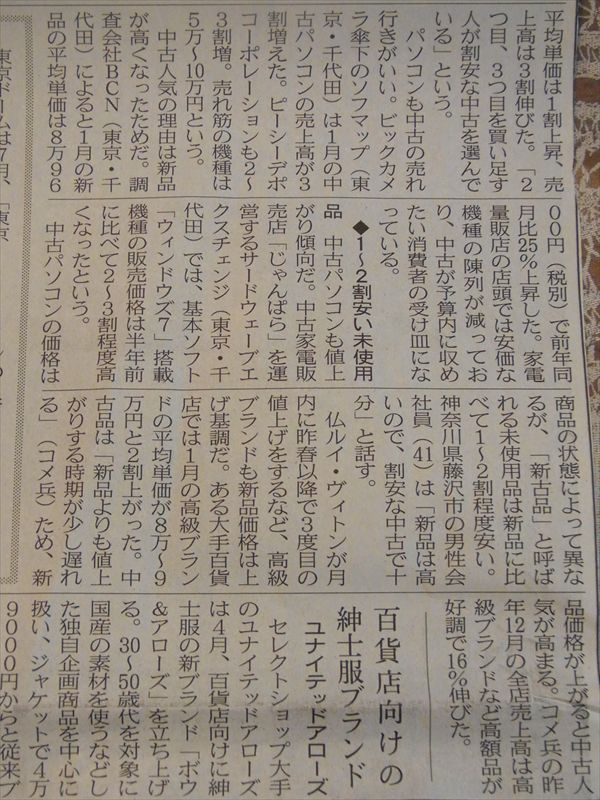 平均単価は１割上昇、売
上高は３割伸びた。「２
つ目、３つ目を買い足す
人が割安な中古を選んで
いる」という。
パソコンも中古の売れ
行きがいい。ビックカメ
ラ傘下のソフマップ（東
京・千代田）は１月の中
古パソコンの売上高が３
割増えた。ピーシーデポ
コーポレーションも２〜
３割増。売れ筋の機種は
５万〜10万円という。
中古人気の理由は新品
が高くなったためだ。調
査会社ＢＣＮ（東京・千
代田）によると１月の新
品の平均単価は８万９６
００円（税別）で前年同
月比25％上昇した。家電
量販店の店頭では安価な
機種の陳列が減ってお
り、中古が予算内に収め
たい消費者の受け皿にな
っている。
◆１〜２割安い未使用
品　中古パソコンも値上
がり傾向だ。中古家電販
売店「じゃんぱら」を運
営するサードウェーブエ
クスチェンジ（東京・千
代田）では、基本ソフト
「ウィンドウズ７」搭載
機種の販売価格は半年前
に比べて２〜３割程度高
くなったという。
中古パソコンの価格は
商品の状態によって異な
るが、「新古品」と呼ば
れる未使用品は新品に比
べて１〜２割程度安い。
神奈川県藤沢市の男性会
社員（41）は「新品は高
いので、割安な中古で十
分」と話す。
仏ルイ・ヴィトンが月
内に昨春以降で３度目の
値上げをするなど、高級
ブランドも新品価格は上
げ基調だ。ある大手百貨
店では１月の高級ブラン
ドの平均単価が８万〜９
万円と２割上がった。中
古品は「新品よりも値上
がりする時期が少し遅れ
る」（コメ兵）ため、新
品価格が上がると中古人
気が高まる。コメ兵の昨
年12月の全店売上高は高
級ブランドなど高額品が
好調で16％伸びた。
百貨店向けの
紳士服ブランド
ユナイテッドアローズ
セレクトショップ大手
のユナイテッドアローズ
は４月、百貨店向けに紳
士服の新ブランド「ボウ
＆アローズ」を立ち上げ
る。30〜50歳代を対象に
国産の素材を使うなどし
た独自企画商品を中心に
扱い、ジャケットで４万
９０００円からと従来ブ
東京ドームは７月、「東京